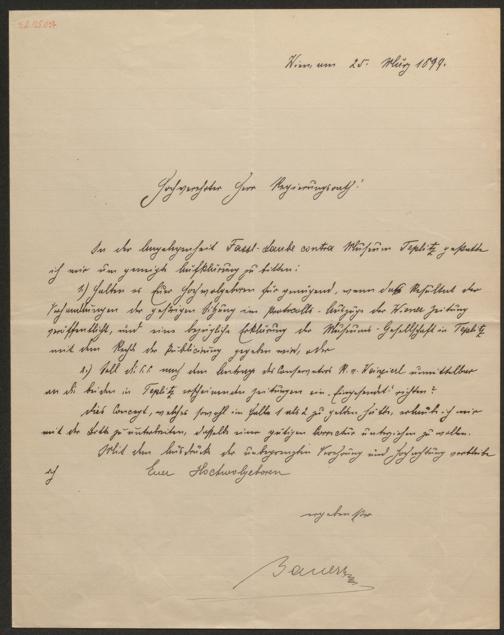 Wien, am 25. März 1899.
Hochverehrter Herr Regierungsrath!
In der Angelegenheit Fassl-Laube contra Museum Teplitz gestatte
ich mir um geneigte Aufklärung zu bitten:
1.) Halten es Euer Hochwolgeboren für genügend, wenn das Resultat der
Verhandlungen der gestrigen Sitzung im Protokolls-Auszuge der Wiener Zeitung
veröffentlicht, und eine bezügliche Erklärung der Museums-Gesellschaft in Teplitz
mit dem Recht der Publicierung gegeben wird, oder
2.) soll die nach dem Antrag des Conservators R. v. Weinzierl unmittelbar
an die beiden in Teplitz erscheinenden Zeitungen ein "Eingesendet" richten?
Das Concept, welches sowohl im Falle 1 als 2 zu gelten hätte, erlaube ich mir
mit der Bitte zu unterbreiten, dasselbe einer gütigen Correctur unterziehen zu wollen.
Mit dem Ausdruck der Verehrung und Hochachtung verbleibe
ich Euer Hochwolgeboren
ergebenster
Bauer